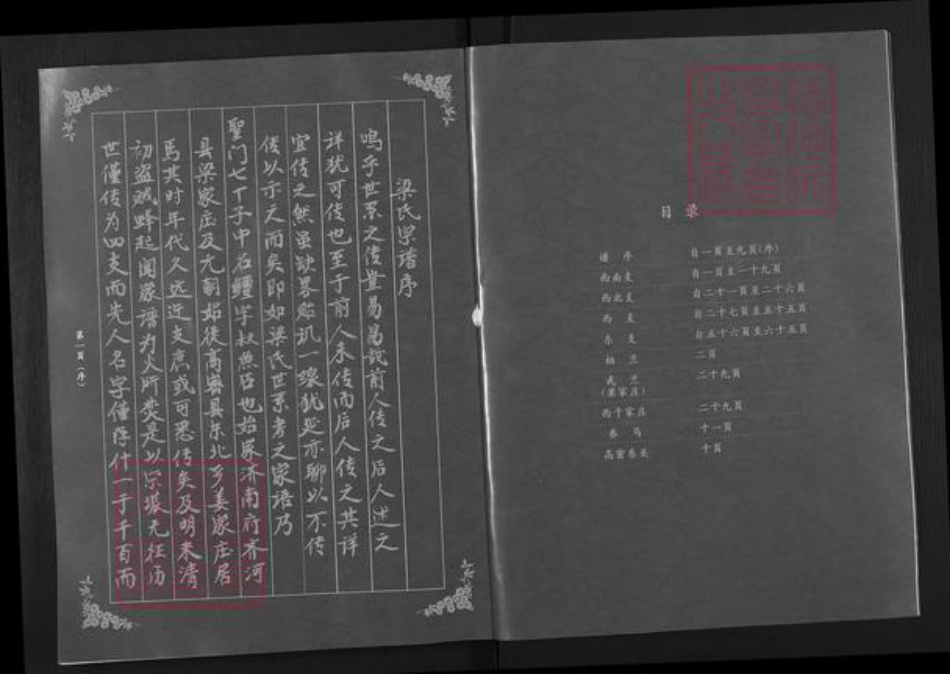 梁氏宗谱序
鸣乎世系之传岂易易哉前人传之后人述之
详犹可传也至于前人未传而后人传之其详
宜传之然虽缺畧贻讥一線犹是亦聊以不传
传以示天而矣即如梁氏世系考之家语乃
聖门七十子中名鱣字叔魚后也始家济南府齐河
县梁家庄及元朝始徙高密县东北乡姜家庄居
焉其时年代久远近支庶或可悉传矣及明末清
初盗贼蜂起闻家谱为火所焚是以宗派无征历
世仅传为四支而先人名字仅存什一于千百而
第一頁(序)
目录
谱序 自一頁至九頁(序)
西南支 自一頁至一十九頁
西北支 自二十一頁至二十六頁
西支 自二十七頁至五十五頁
东支 自五十六頁至六十五頁
柏兰 二頁
二十九頁
(梁家庄)
西于家庄 二十九頁
泰马 十一頁
高密东关 十頁